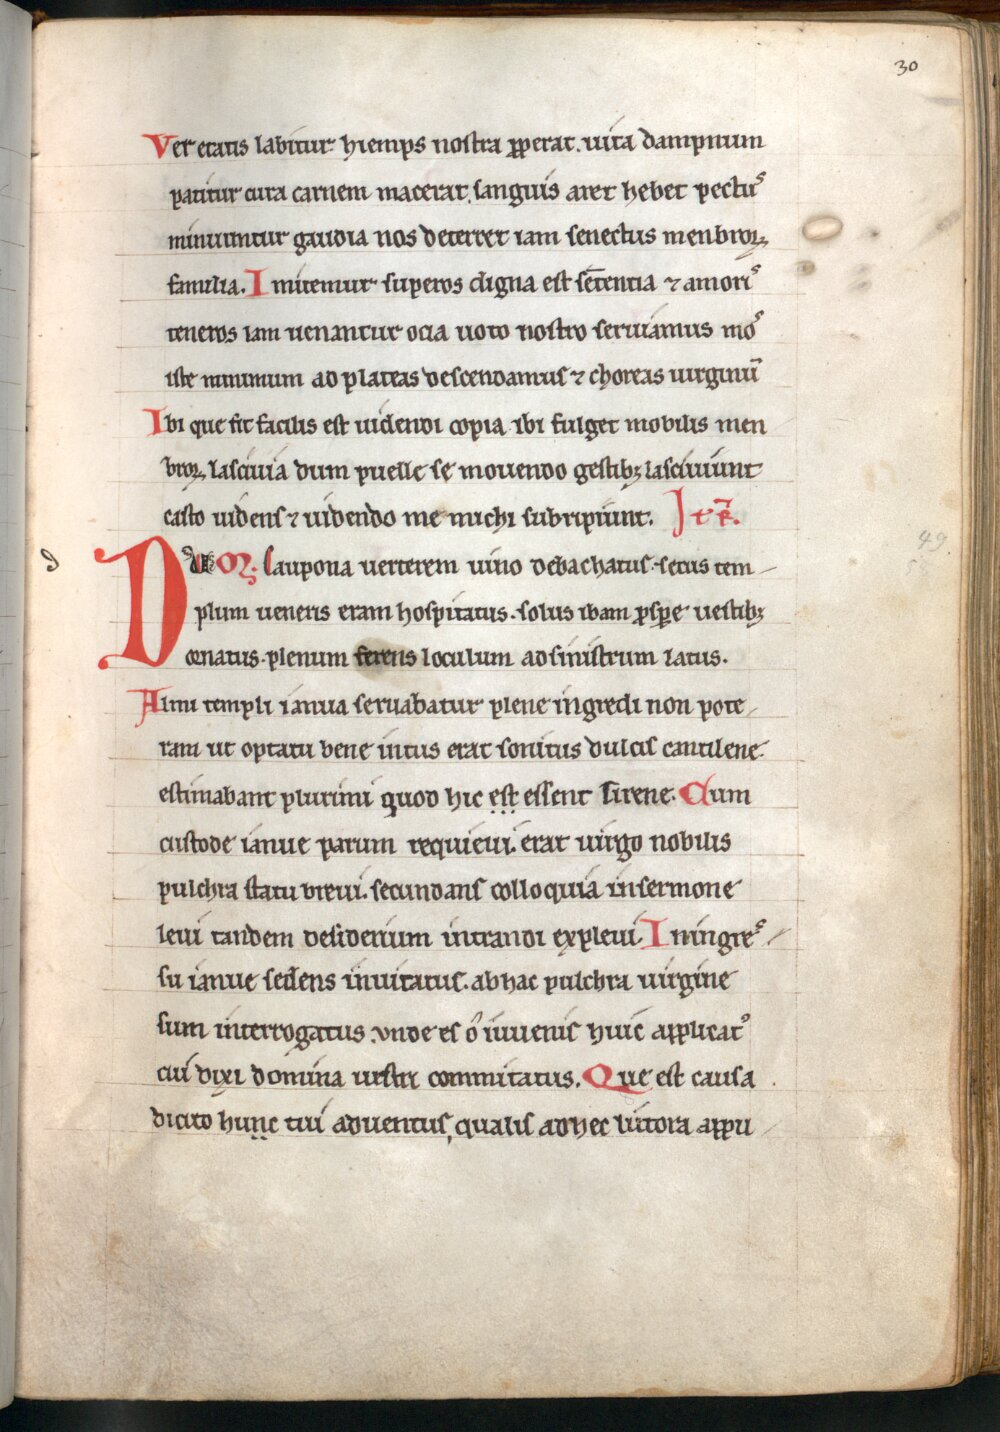 30
Ver etatis labitur. hiemps nostra ꝓperat. uita dampnum
patitur cura carnem macerat. sanguis aret hebet pectus
minuuntur gaudia nos deterret iam senectus menbroꝝ
familia. Imitemur superos digna est sētentia ⁊ amoris
teneros iam uenantur ocia uoto nostro seruiamus mos
iste minimum ad plateas descendamus ⁊ choreas uirginū
Ibi que fit facilis est uidendi copia ibi fulget mobilis men
broꝝ lasciuia dum puelle se mouendo gestibꝫ lasciuiunt
casto uidens ⁊ uidendo me michi subripiunt. Itē.
Dum caupona uerterem uino debachatus. secus tem
plum ueneris eram hospitatus. solus ibam ꝓspere uestibꝫ
ornatus. plenum ferens loculum ad sinistrum latus.
Almi templi ianua seruabatur plene ingredi non pote
ram ut optatu bene intus erat sonitus dulcis cantilene
estimabant plurimi quod hic est essent sirene. Cum
custode ianue parum requieui. erat uirgo nobilis
pulchra statu breui. secundans colloquia in sermone
leui tandem desiderium intrandi expleui. In ingres
su ianue sedens inuitatus. ab hac pulchra uirgine
sum interrogatus. vnde es o iuuenis huic applicatus
cui dixi domina uestri commitatus. Que est causa
dicito hunc tui aduentus, qualis ad hec littora appu
49